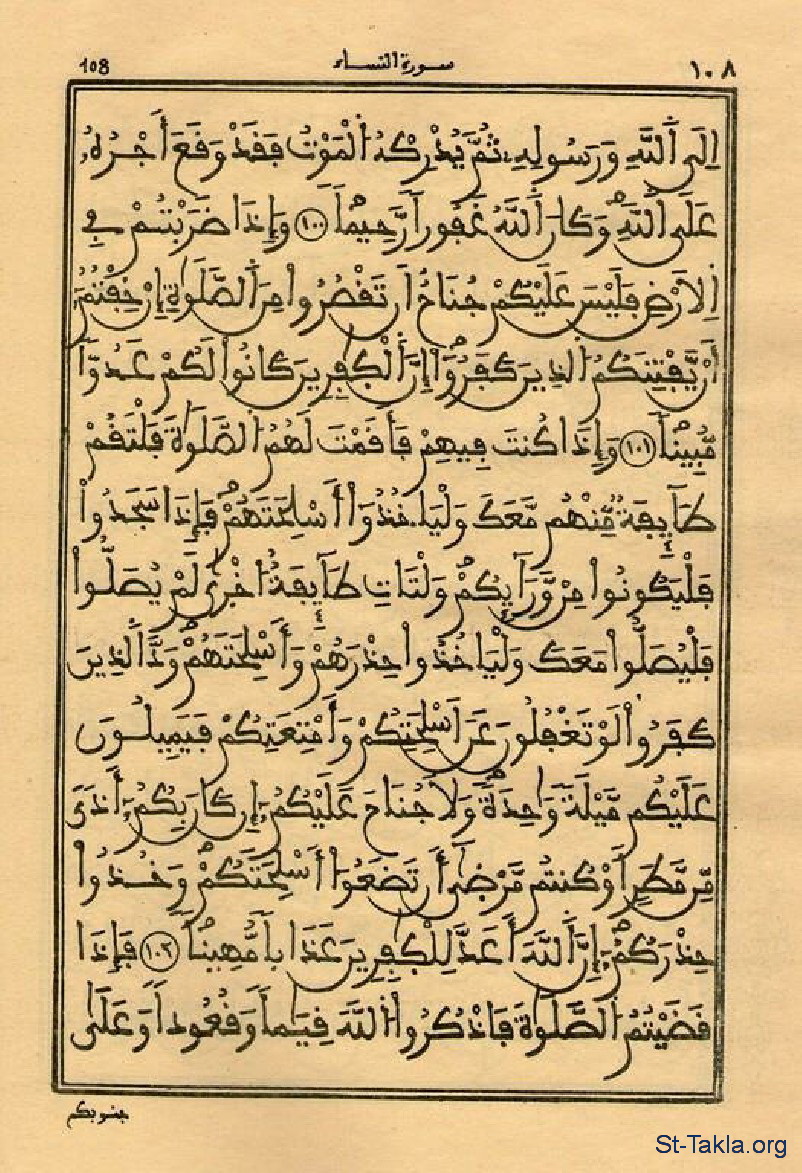 108 سورة النساء ١٠٨
إِلَى اَللَّهِ وَرَسُولِهِۦ ثُمَّ يُدْرِكْهُ اُلْمَوْتُ فَقَدْ وَقَعَ أَجْرُهُۥ
عَلَى اَللَّهِۖ وَكَانَ اَللَّهُ غَفُوراٗ رَّحِيماٗ ١٠٠ وَإِذَا ضَرَبْتُمْ فِي
اِلَارْضِ فَلَيْسَ عَلَيْكُمْ جُنَاحٌ اَن تَقْصُرُواْ مِنَ اَلصَّلَوٰةِ إِنْ خِفْتُمُۥٓ
أَنْ يَّفْتِنَكُمُ اُلذِينَ كَفَرُوٓاْۖ إِنَّ اَلْكٰفِرِينَ كَانُواْ لَكُمْ عَدُوّاٗ
مُّبِيناٗ ١٠١ وَإِذَا كُنتَ فِيهِمْ فَأَقَمْتَ لَهُمُ اُلصَّلَوٰةَ فَلْتَقُمْ
طَآئِفَةٞ مِّنْهُم مَّعَكَ وَلْيَاخُذُوٓاْ أَسْلِحَتَهُمْۖ فَإِذَا سَجَدُواْ
فَلْيَكُونُواْ مِنْ وَّرَآئِكُمْۖ وَلْتَاتِ طَآئِفَةٌ اُخْر۪ىٰ لَمْ يُصَلُّواْ
فَلْيُصَلُّواْ مَعَكَ وَلْيَاخُذُواْ حِذْرَهُمْ وَأَسْلِحَتَهُمْۖ وَدَّ اَلذِينَ
كَفَرُواْ لَوْ تَغْفُلُونَ عَنَ اَسْلِحَتِكُمْ وَأَمْتِعَتِكُمْ فَيَمِيلُونَ
عَلَيْكُم مَّيْلَةٗ وَٰحِدَةٗۖ وَلَا جُنَاحَ عَلَيْكُمُۥٓ إِن كَانَ بِكُمُۥٓ أَذىٗ
مِّن مَّطَرٍ اَوْ كُنتُم مَّرْض۪ىٰٓ أَن تَضَعُوٓاْ أَسْلِحَتَكُمْۖ وَخُذُواْ
حِذْرَكُمُۥٓۖ إِنَّ اَللَّهَ أَعَدَّ لِلْكٰفِرِينَ عَذَاباٗ مُّهِيناٗ ١٠٢ فَإِذَا
قَضَيْتُمُ اُلصَّلَوٰةَ فَاذْكُرُواْ اُللَّهَ قِيَٰماٗ وَقُعُوداٗ وَعَلَىٰ
جنوبكم
St-Takla.org